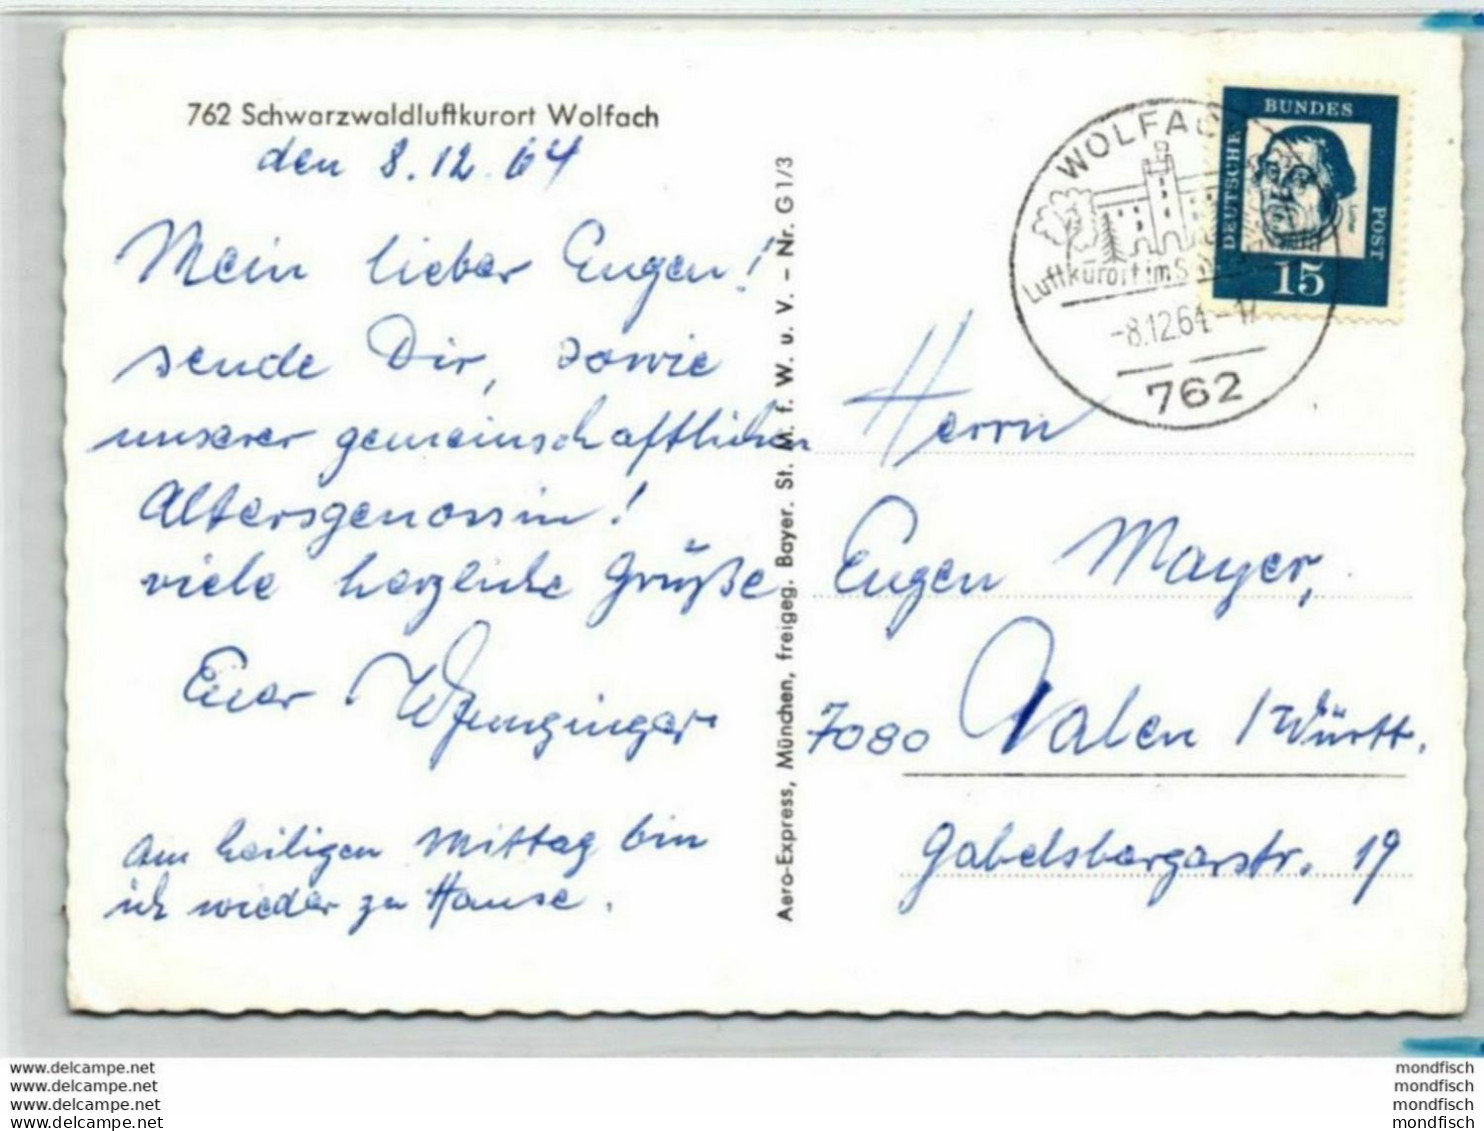 762 Schwarzwaldluftkurort Wolfach
den 8.12.64
Mein lieber Eugen!
sende Dir, sowie
unserer gemeinschaftlichen
Altersgenossin!
viele herzliche Grüße
Euer
Am heiligen Mittag bin
ich wieder zu Hause.
Aero-Express, München, freigeg. Bayer. St. M. f. W. u. V. - Nr. G 1/3
WOLFAC
Luftkurort im S
-8.12.64-17
762
DEUTSCHE
BUNDES
POST
15
Herrn
Eugen Mayer,
7080 Aalen / Württ.
Gabelsbergerstr. 19
www.delcampe.net
www.delcampe.net
www.delcampe.net
www.delcampe.net
mondfisch
mondfisch
mondfisch
mondfisch